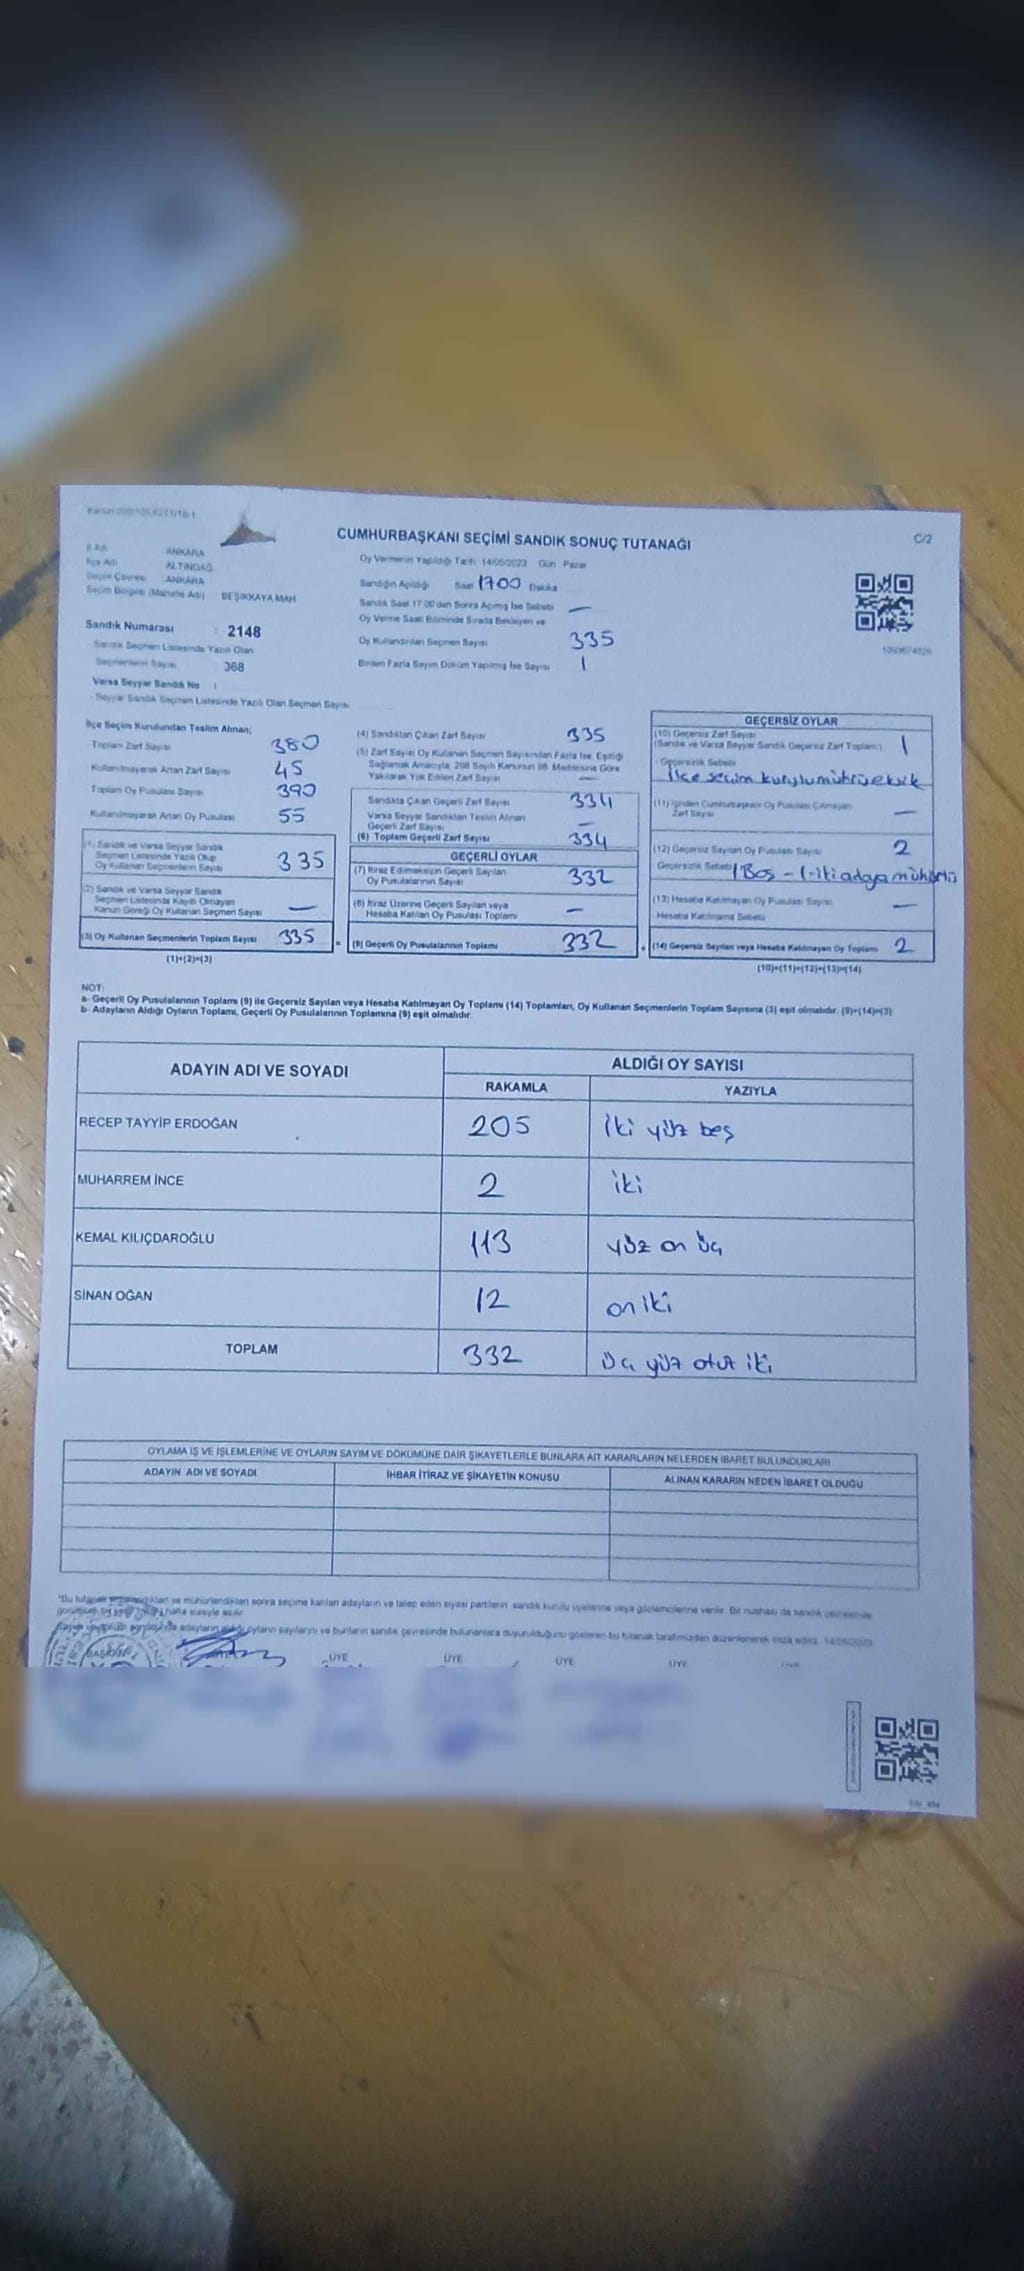 CUMHURBAŞKANI SEÇİMİ SANDIK SONUÇ TUTANAĞI
C/2
İl Adı : ANKARA
İlçe Adı : ALTINDAĞ
Seçim Çevresi : ANKARA
Seçim Bölgesi (Mahalle Adı) BEŞİKKAYA MAH.
Sandık Numarası : 2148
Sandık Seçmen Listesinde Yazılı Olan
Seçmenlerin Sayısı : 368
Varsa Seyyar Sandık No :
Seyyar Sandık Seçmen Listesinde Yazılı Olan Seçmen Sayısı
Oy Vermenin Yapıldığı Tarih 14/05/2023 Gün Pazar
Sandığın Açıldığı Saat 1700 Dakika
Sandık Saat 17:00'den Sonra Açılmış İse Sebebi —
Oy Verme Saati Bitiminde Sırada Bekleyen ve
Oy Kullandırılan Seçmen Sayısı 335
Birden Fazla Sayım Döküm Yapılmış İse Sayısı 1
İlçe Seçim Kurulundan Teslim Alınan;
Toplam Zarf Sayısı 380
Kullanılmayarak Artan Zarf Sayısı 45
Toplam Oy Pusulası Sayısı 390
Kullanılmayarak Artan Oy Pusulası 55
(1) Sandık ve Varsa Seyyar Sandık
Seçmen Listesinde Yazılı Olup
Oy Kullanan Seçmenlerin Sayısı 335
(2) Sandık ve Varsa Seyyar Sandık
Seçmen Listesinde Kayıtlı Olmayan
Kanun Gereği Oy Kullanan Seçmen Sayısı —
(3) Oy Kullanan Seçmenlerin Toplam Sayısı 335
(1)+(2)=(3)
(4) Sandıktan Çıkan Zarf Sayısı 335
(5) Zarf Sayısı Oy Kullanan Seçmen Sayısından Fazla İse, Eşitliği
Sağlamak Amacıyla, 298 Sayılı Kanunun 98. Maddesine Göre
Yakılarak Yok Edilen Zarf Sayısı —
Sandıkta Çıkan Geçerli Zarf Sayısı 334
Varsa Seyyar Sandıktan Teslim Alınan
Geçerli Zarf Sayısı —
(6) Toplam Geçerli Zarf Sayısı 334
GEÇERLİ OYLAR
(7) İtiraz Edilmeksizin Geçerli Sayılan
Oy Pusulalarının Sayısı 332
(8) İtiraz Üzerine Geçerli Sayılan veya
Hesaba Katılan Oy Pusulası Toplamı —
(9) Geçerli Oy Pusulalarının Toplamı 332
GEÇERSİZ OYLAR
(10) Geçersiz Zarf Sayısı
(Sandık ve Varsa Seyyar Sandık Geçersiz Zarf Toplamı) 1
Geçersizlik Sebebi
İlçe seçim kurulu mührü eksik
(11) İçinden Cumhurbaşkanı Oy Pusulası Çıkmayan
Zarf Sayısı —
(12) Geçersiz Sayılan Oy Pusulası Sayısı 2
Geçersizlik Sebebi 1 Boş - 1 - iki adaya mühürlü
(13) Hesaba Katılmayan Oy Pusulası Sayısı —
Hesaba Katılmama Sebebi
(14) Geçersiz Sayılan veya Hesaba Katılmayan Oy Toplamı 2
(10)+(11)+(12)+(13)=(14)
NOT:
a- Geçerli Oy Pusulalarının Toplamı (9) ile Geçersiz Sayılan veya Hesaba Katılmayan Oy Toplamı (14) Toplamları, Oy Kullanan Seçmenlerin Toplam Sayısına (3) eşit olmalıdır. (9)+(14)=(3)
b- Adayların Aldığı Oyların Toplamı, Geçerli Oy Pusulalarının Toplamına (9) eşit olmalıdır.
ADAYIN ADI VE SOYADI ALDIĞI OY SAYISI
RAKAMLA YAZIYLA
RECEP TAYYİP ERDOĞAN 205 iki yüz beş
MUHARREM İNCE 2 iki
KEMAL KILIÇDAROĞLU 113 yüz on üç
SİNAN OĞAN 12 on iki
TOPLAM 332 üç yüz otuz iki
OYLAMA İŞ VE İŞLEMLERİNE VE OYLARIN SAYIM VE DÖKÜMÜNE DAİR ŞİKAYETLERLE BUNLARA AİT KARARLARIN NELERDEN İBARET BULUNDUKLARI
ADAYIN ADI VE SOYADI İHBAR İTİRAZ VE ŞİKAYETİN KONUSU ALINAN KARARIN NEDEN İBARET OLDUĞU
ve mühürlendikten sonra seçime katılan adayların ve talep eden siyasi partilerin sandık kurulu üyelerine veya gözlemcilerine verilir. Bir nüshası da sandık çevresinde
hafta süreyle asılır.
adayların aldığı oyların sayılarını ve bunların sandık çevresinde bulunanlara duyurulduğunu gösteren bu tutanak tarafımızdan düzenlenerek imza edildi. 14/05/2023
BAŞKAN ÜYE ÜYE ÜYE ÜYE ÜYE